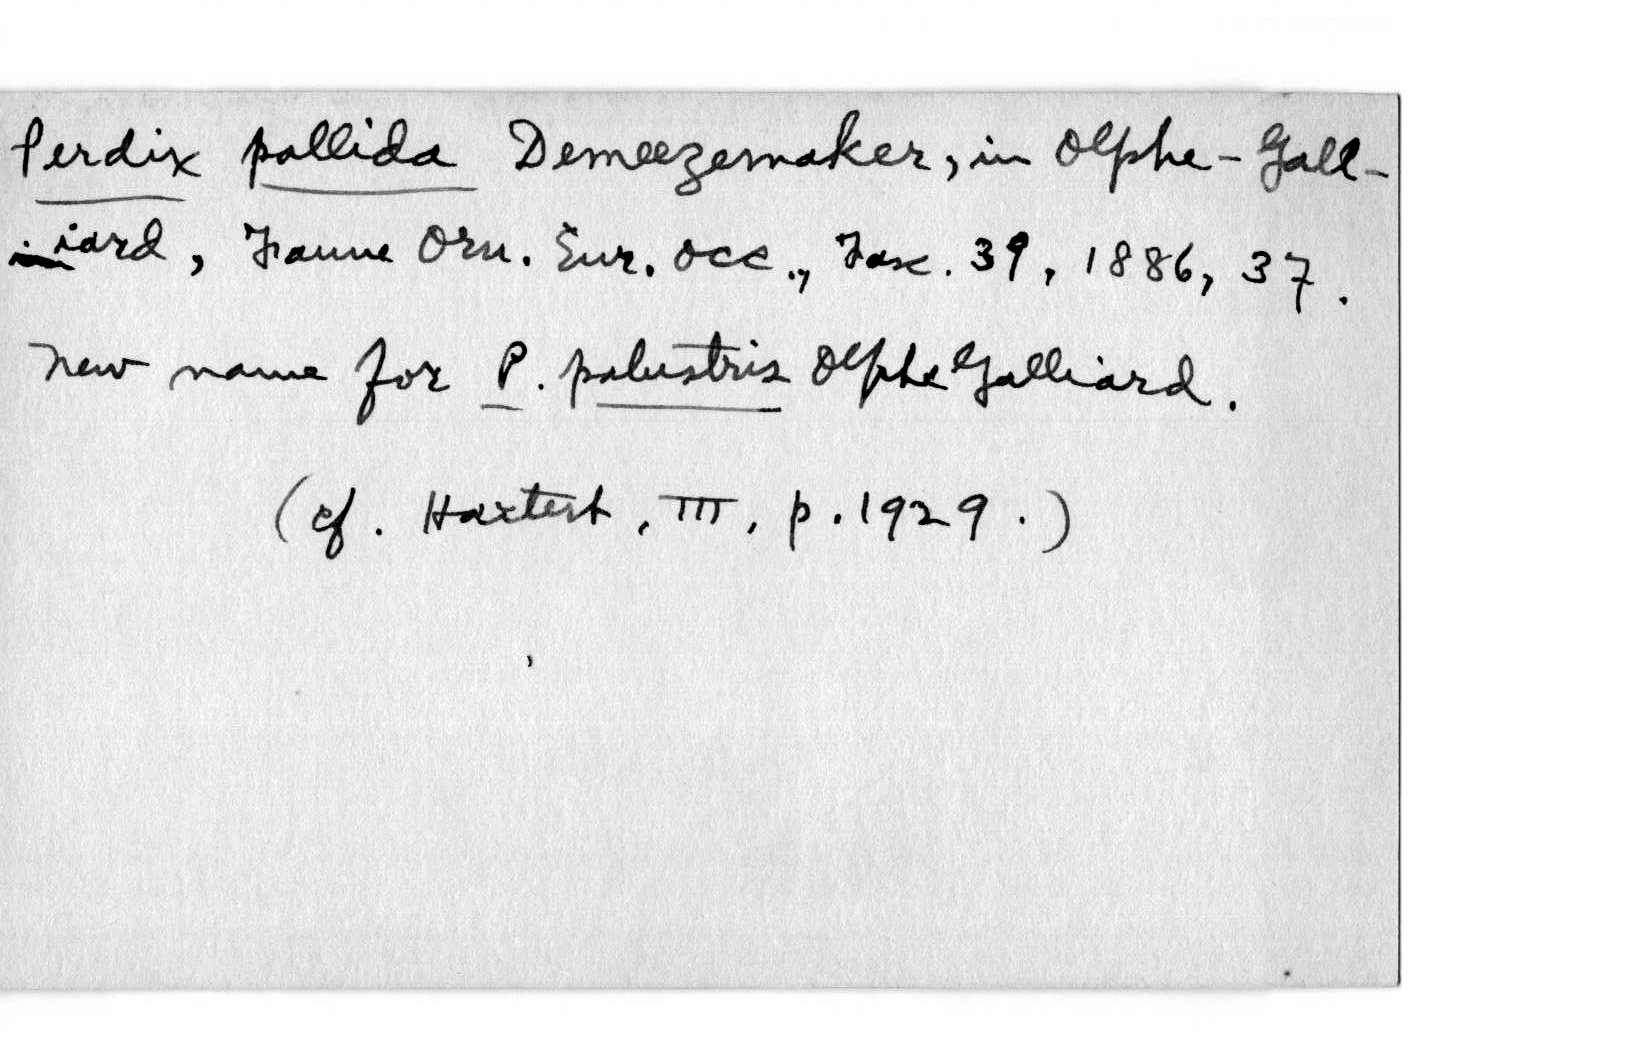 Perdix pallida Demeezemaker, in Olphe-Gall-
iard, Faune Orn. Eur. occ., Fasc. 39, 1886, 37.
New name for P. palustris Olphe Galliard.
(cf. Hartert, III, p. 1929.)